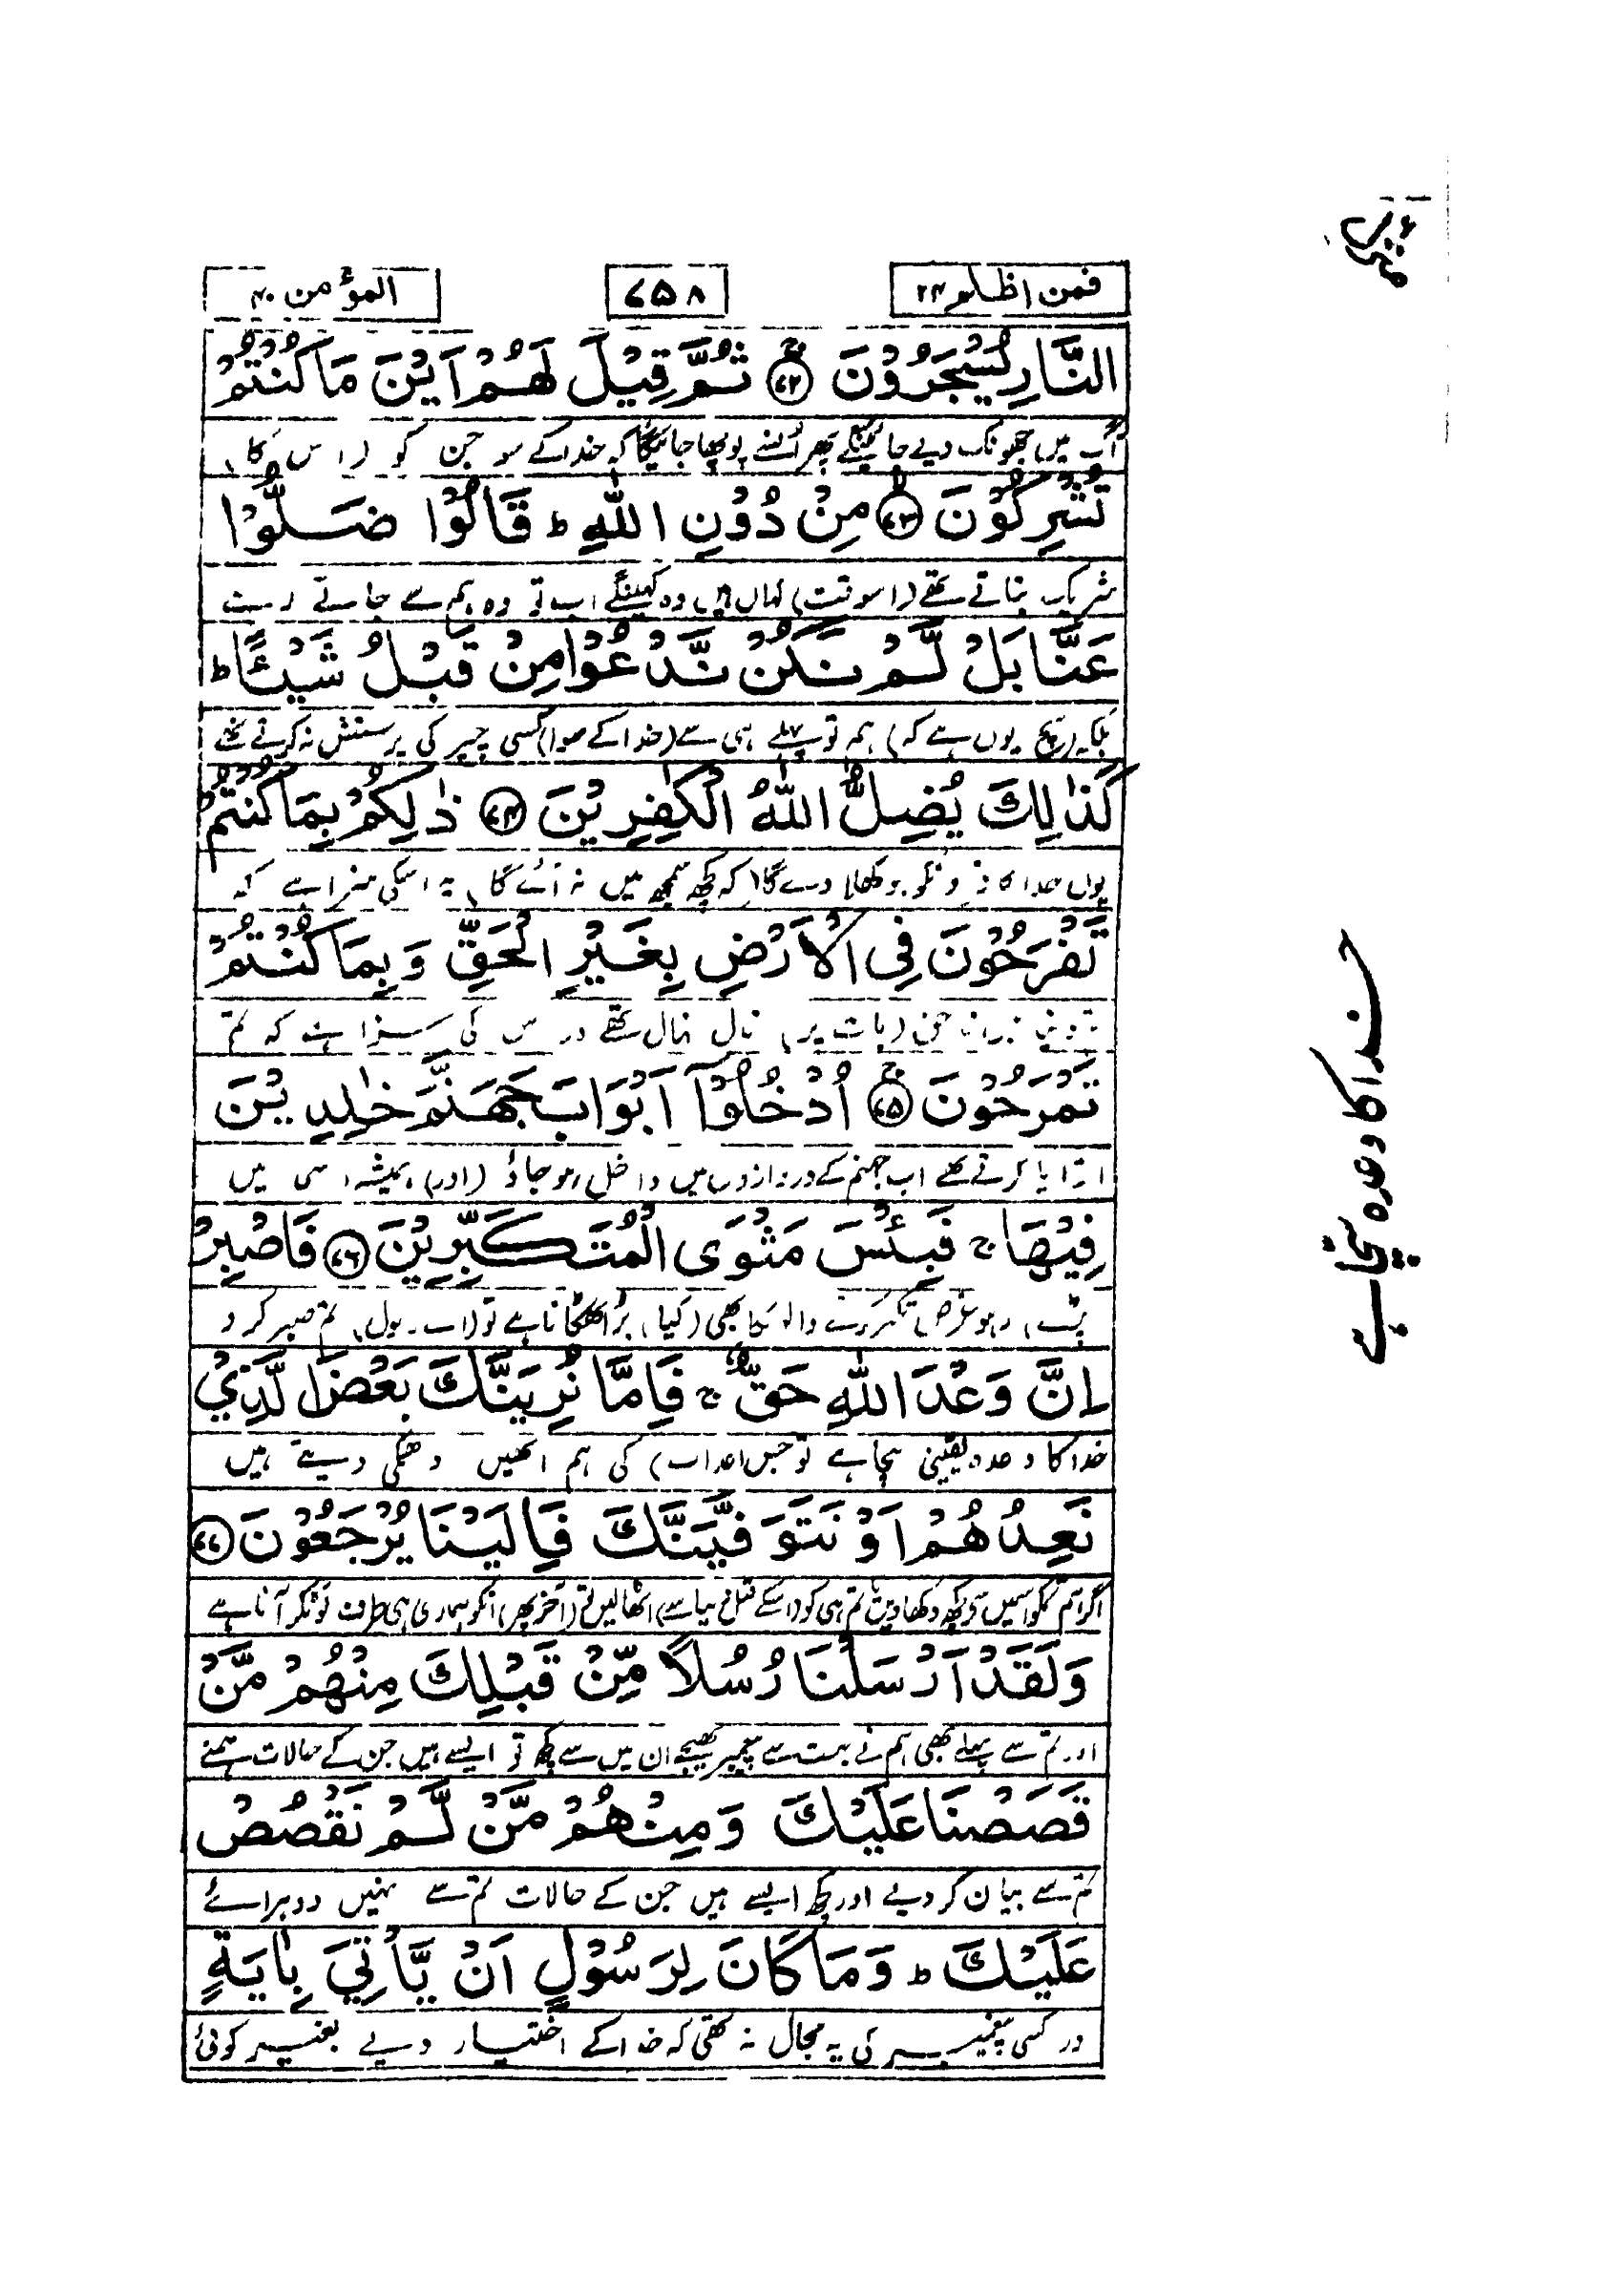 فمن اظلم ۲۴
۷۵۸
المؤمن ۴۰
النَّارِ يُسْجَرُوْنَ ﴿۷۲﴾ ج ثُمَّ قِيْلَ لَهُمْ اَيْنَ مَا كُنْتُمْ
آگ میں جھونک دیے جائینگے پھر اُنسے پوچھا جائیگا کہ خدا کے سو جن کو (اس کا)
تُشْرِكُوْنَ ﴿۷۳﴾ لا مِنْ دُوْنِ اللّٰهِ ط قَالُوْا ضَلُّوْا
شریک بناتے تھے (اسوقت) کہاں ہیں وہ کہینگے اب تو وہ ہم سے جاتے رہے
عَنَّا بَلْ لَّمْ نَكُنْ نَّدْعُوْا مِنْ قَبْلُ شَيْـًٔا ط
بلکہ (سچ یوں ہے کہ) ہم تو پہلے ہی سے (خدا کے سوا) کسی چیز کی پرستش نہ کرتے تھے
كَذٰلِكَ يُضِلُّ اللّٰهُ الْكٰفِرِيْنَ ﴿۷۴﴾ ذٰلِكُمْ بِمَا كُنْتُمْ
یوں خدا کافرونکو بوکھلا دے گا (کہ کچھ سمجھ میں نہ آئے گا) یہ اسکی سزا ہے کہ
تَفْرَحُوْنَ فِى الْاَرْضِ بِغَيْرِ الْحَقِّ وَبِمَا كُنْتُمْ
حق (بات پر) نہال تھے کی سزا ہے کہ تم
تَمْرَحُوْنَ ﴿۷۵﴾ ج اُدْخُلُوْٓا اَبْوَابَ جَهَنَّمَ خٰلِدِيْنَ
اترایا کرتے تھے اب جہنم کے دروازوں میں داخل ہو جاؤ (اور) ہمیشہ اسی میں
فِيْهَا ج فَبِئْسَ مَثْوَى الْمُتَكَبِّرِيْنَ ﴿۷۶﴾ فَاصْبِرْ
پڑے رہو غرض تکبر کرنے والوں کا بھی (کیا) بُرا ٹھکانا ہے تو (اے رسول) تم صبر کرو
اِنَّ وَعْدَ اللّٰهِ حَقٌّ ج فَاِمَّا نُرِيَنَّكَ بَعْضَ الَّذِيْ
خدا کا وعدہ یقینی سچا ہے تو جس (عذاب) کی ہم انھیں دھمکی دیتے ہیں
نَعِدُهُمْ اَوْ نَتَوَفَّيَنَّكَ فَاِلَيْنَا يُرْجَعُوْنَ ﴿۷۷﴾
اگر ہم تمکو اسمیں سے کچھ دکھا دیں یا تم ہی کو (اسکے قبل دنیا سے) اٹھالیں تو (آخر پھر) انکو ہماری ہی طرف لوٹکر آنا ہے
وَلَقَدْ اَرْسَلْنَا رُسُلًا مِّنْ قَبْلِكَ مِنْهُمْ مَّنْ
اور تم سے پہلے بھی ہم نے بہت سے پیغمبر بھیجے ان میں سے کچھ تو ایسے ہیں جن کے حالات ہمنے
قَصَصْنَا عَلَيْكَ وَمِنْهُمْ مَّنْ لَّمْ نَقْصُصْ
تم سے بیان کر دیے اور کچھ ایسے ہیں جن کے حالات تم سے نہیں دوہرائے
عَلَيْكَ ط وَمَا كَانَ لِرَسُوْلٍ اَنْ يَّاْتِيَ بِاٰيَةٍ
ور کسی پیغمبر کی یہ مجال نہ تھی کہ خدا کے اختیار دیے بغیر کوئی
خدا کا وعدہ سچا ہے